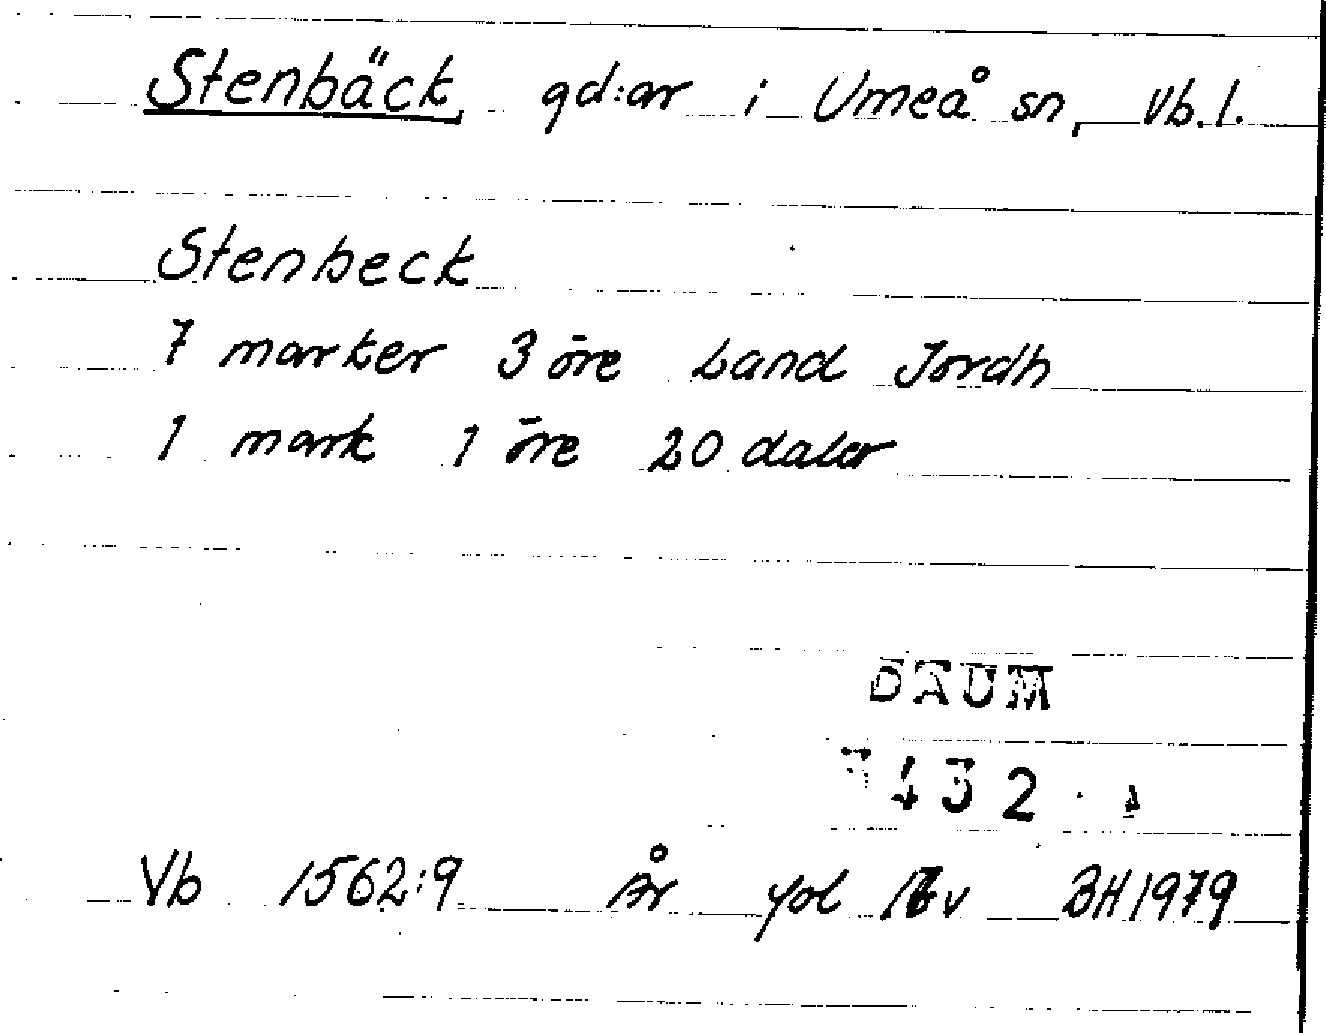 Stenbäck, gd:ar i Umeå sn, Vb. l.
Stenbeck
7 marker 3 öre Land Jordh
1 mark 1 öre 20 daler
DAUM
432
Vb 1562:9 år fol v BH 1979